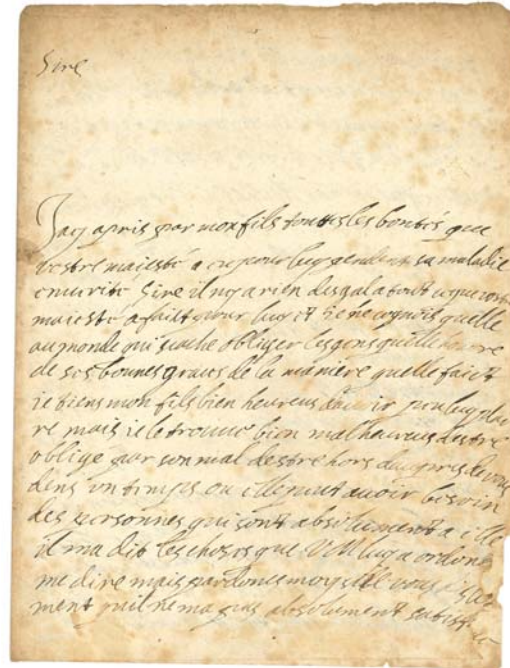 Sire
Jay apris par mon fils touttes les bontés que
vostre maiesté a eu pour luy pendent sa maladie
en verité Sire il ny a rien desgal a tout ce que vostre
maiesté a faict pour luy et ie ne cognois quelle
au monde qui sache obliger les gens quelle honore
de ses bonnes graces de la maniere quelle faict
ie tiens mon fils bien heureus davoir peu luy plai
re mais ie le trouve bien malheureus destre
oblige par son mal destre hors daupres de vous
dens un temps ou elle peut avoir besoin
des personnes qui sont absolument a elle
il ma dit les choses que VM luy a ordoné
me dire mais pardones moy si ie vous
ment quil ne ma pas absolument satisf